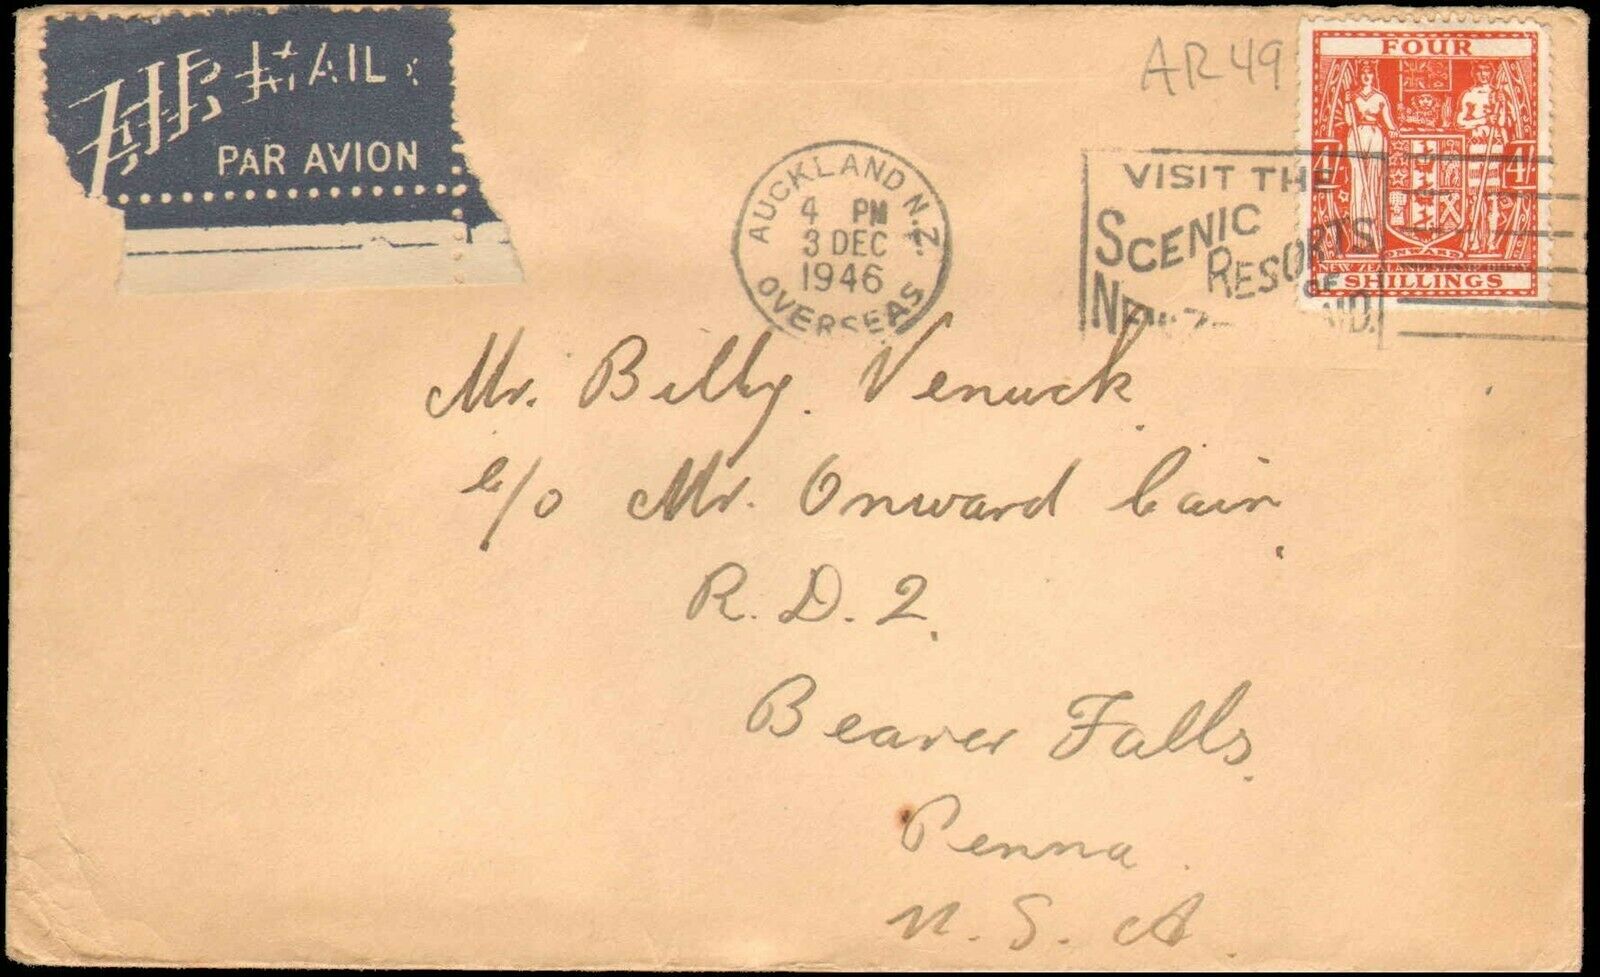 AIR MAIL
PAR AVION
AR 49
FOUR
4/- 4/-
NEW ZEALAND STAMP DUTY
SHILLINGS
AUCKLAND N.Z.
4 PM
3 DEC
1946
OVERSEAS
VISIT THE
SCENIC
RESORTS
OF
Mr. Billy Venuck
c/o Mr. Onward Cain
R. D. 2.
Beaver Falls
Penna
U. S. A